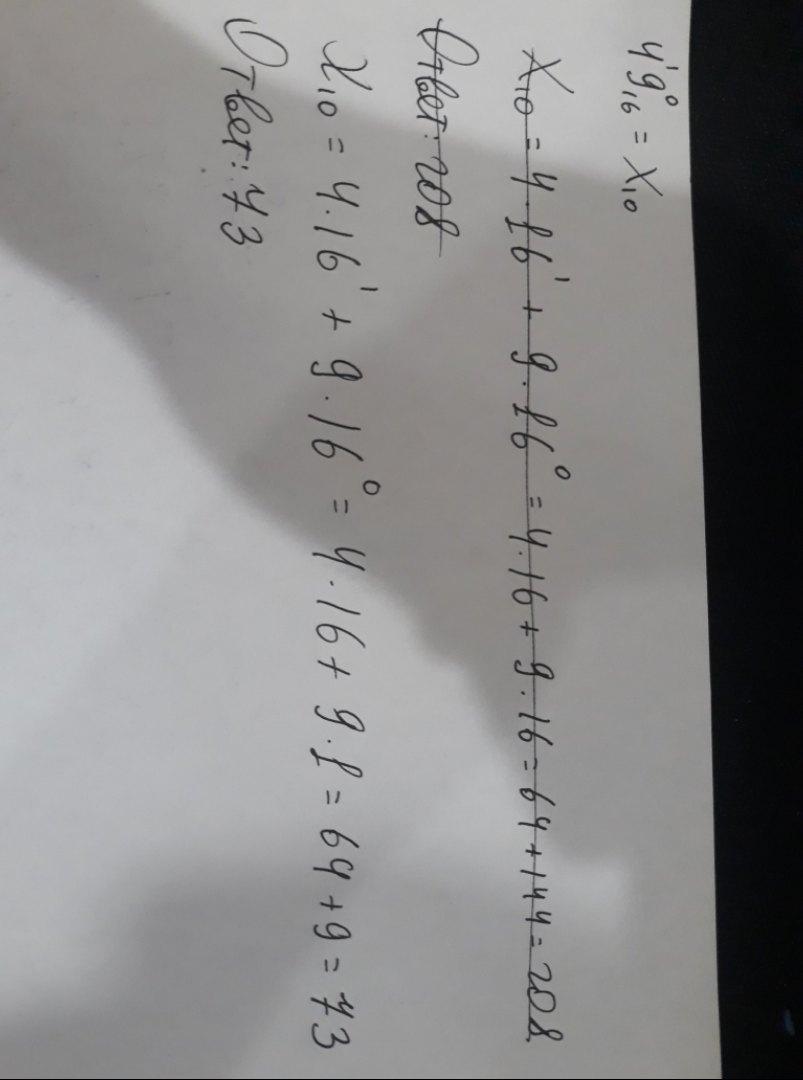 4¹9⁰₁₆ = X₁₀
X₁₀ = 4·16¹ + 9·16⁰ = 4·16 + 9·16 = 64 + 144 = 208
Ответ: 208
X₁₀ = 4·16¹ + 9·16⁰ = 4·16 + 9·1 = 64 + 9 = 73
Ответ: 73